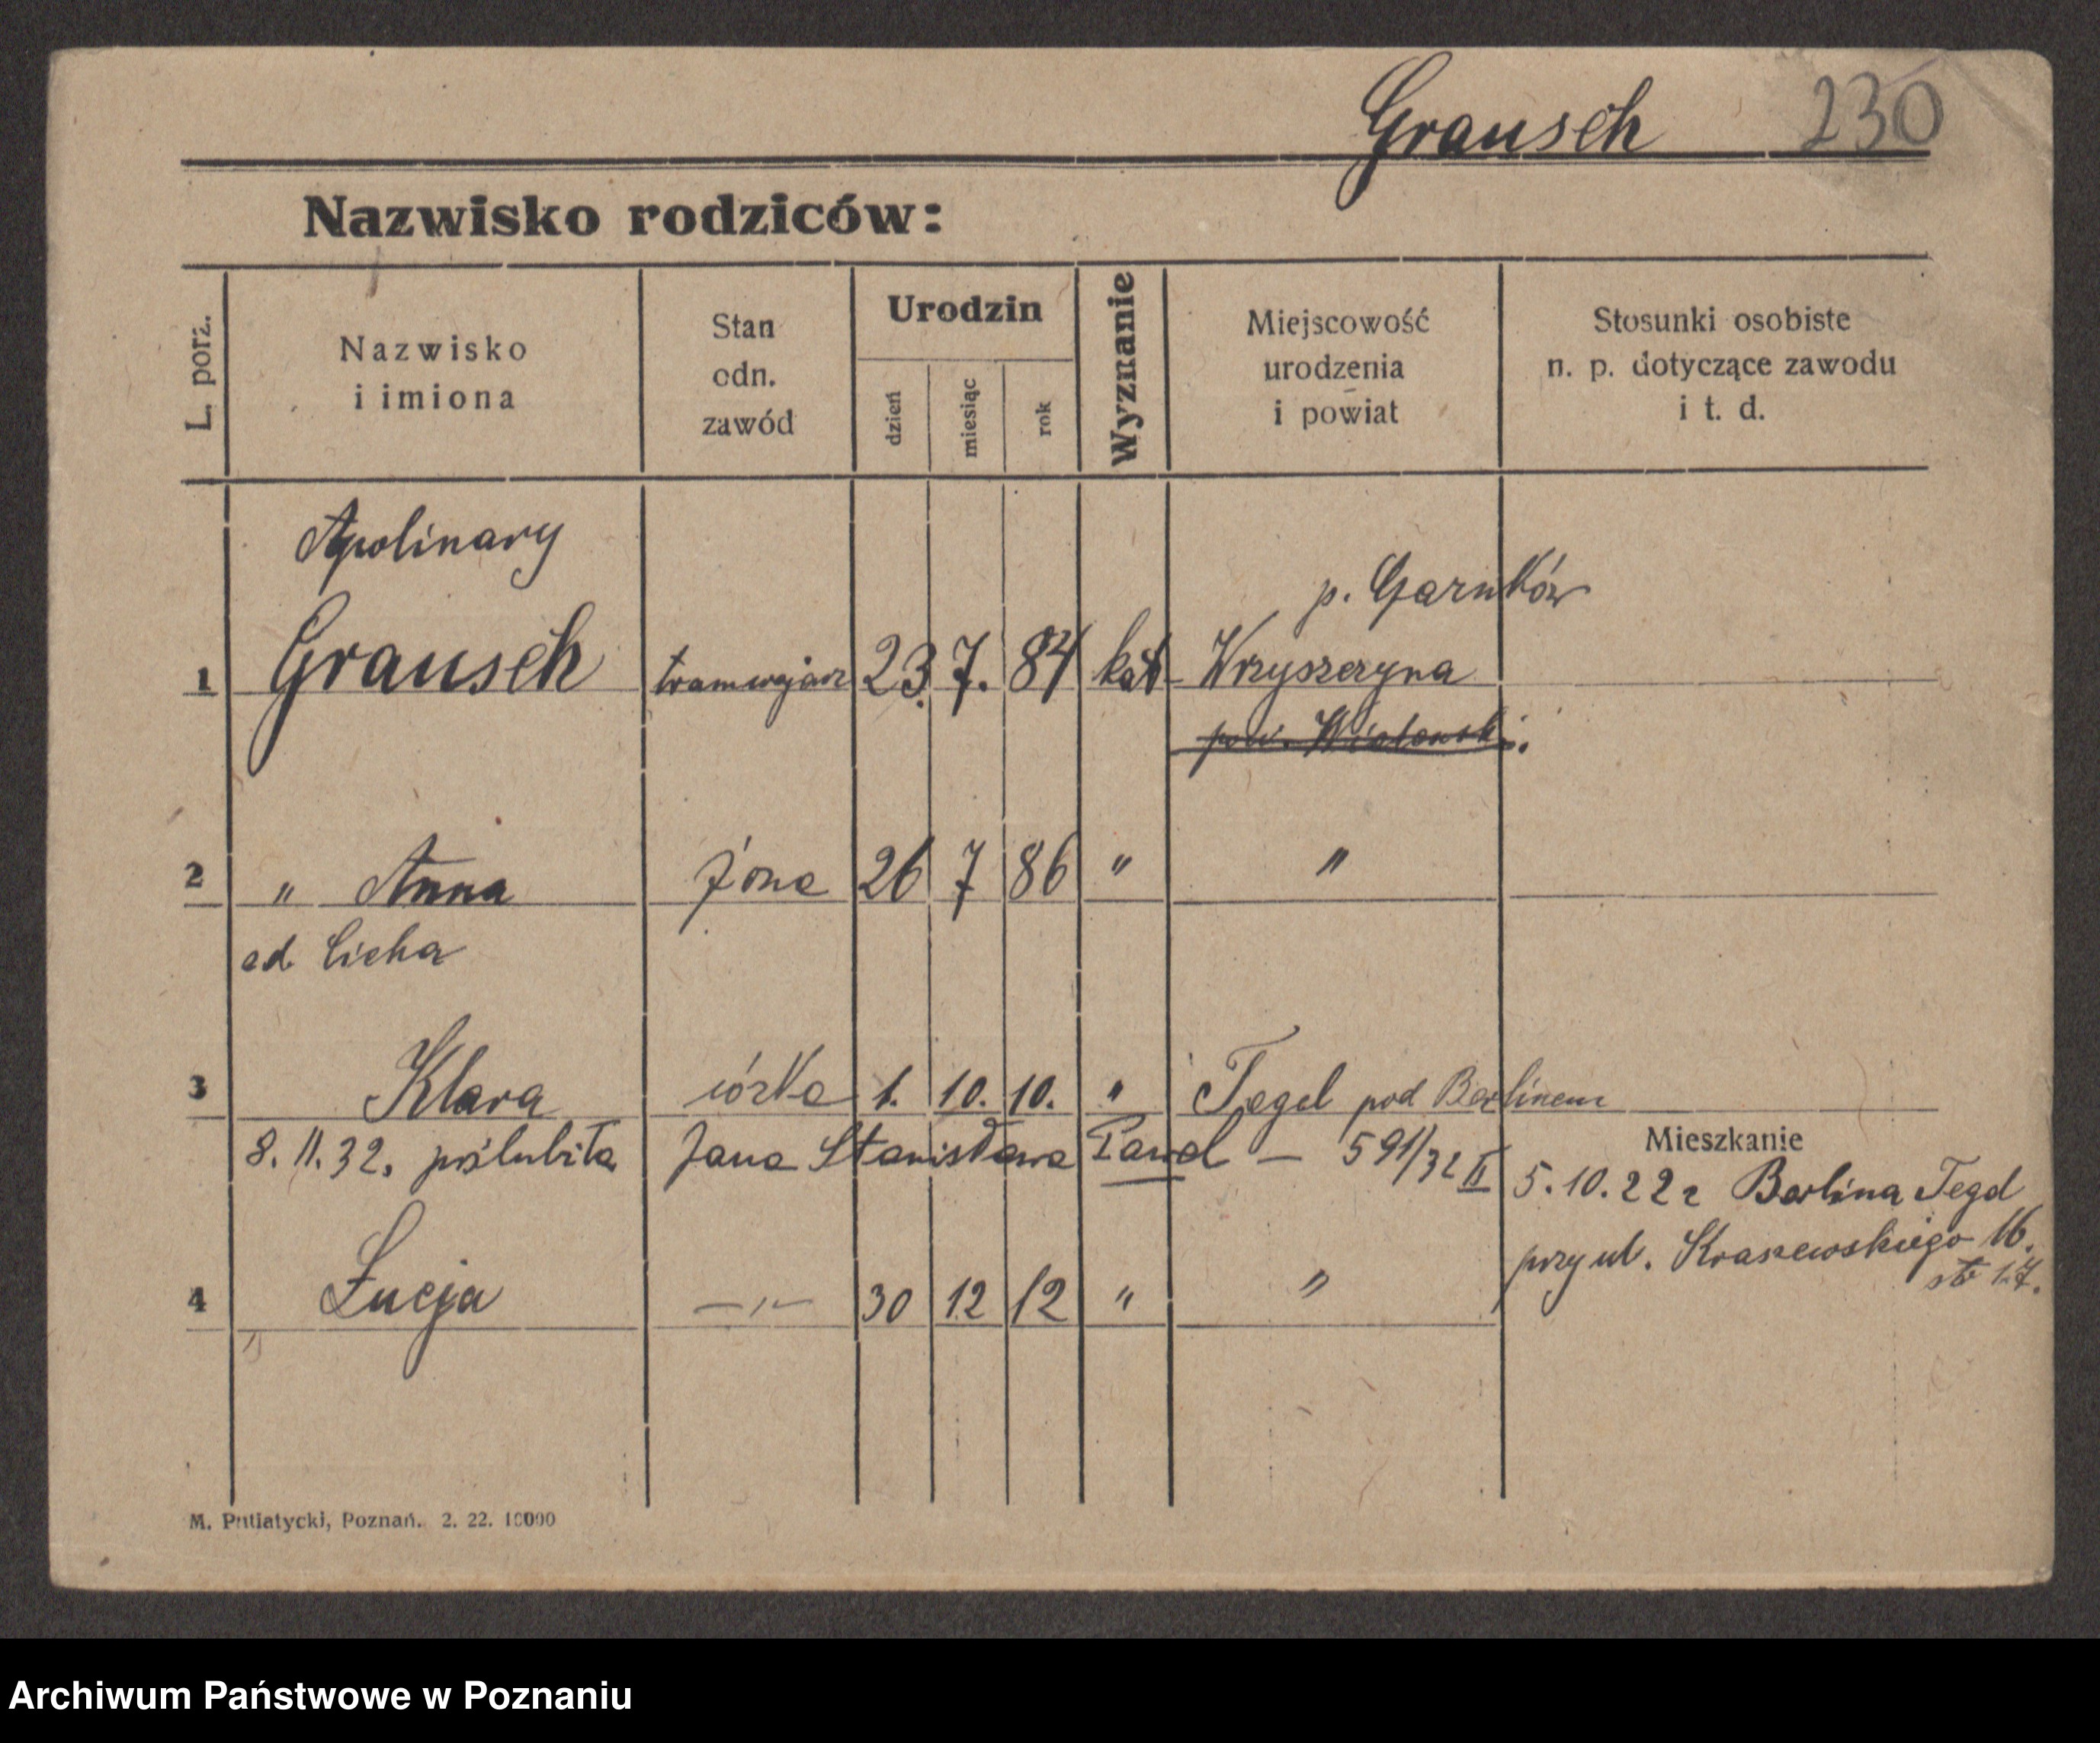 Grausch 230
Nazwisko rodziców:
L. porz.
Nazwisko
i imiona
Stan
odn.
zawód
Urodzin
dzień
miesiąc
rok
Wyznanie
Miejscowość
urodzenia
i powiat
Stosunki osobiste
n. p. dotyczące zawodu
i t. d.
Apolinary
p. Czarnków
1 Grausch tramwajarz 23. 7. 84 kat
pow.
2 " Anna żona 26 7 86 " "
od Cicha
3 Klara córka 1. 10. 10. " Tegel pod Berlinem
8. 11. 32. poślubiła Jana Stanisława Pawel — 591/32 II
Mieszkanie
5. 10. 22 z Berlina Tegel
przy ul. Kraszewskiego 16.
str 17.
4 Łucja —"— 30 12 12 " "
M. Putiatycki, Poznań. 2. 22. 10000
Archiwum Państwowe w Poznaniu